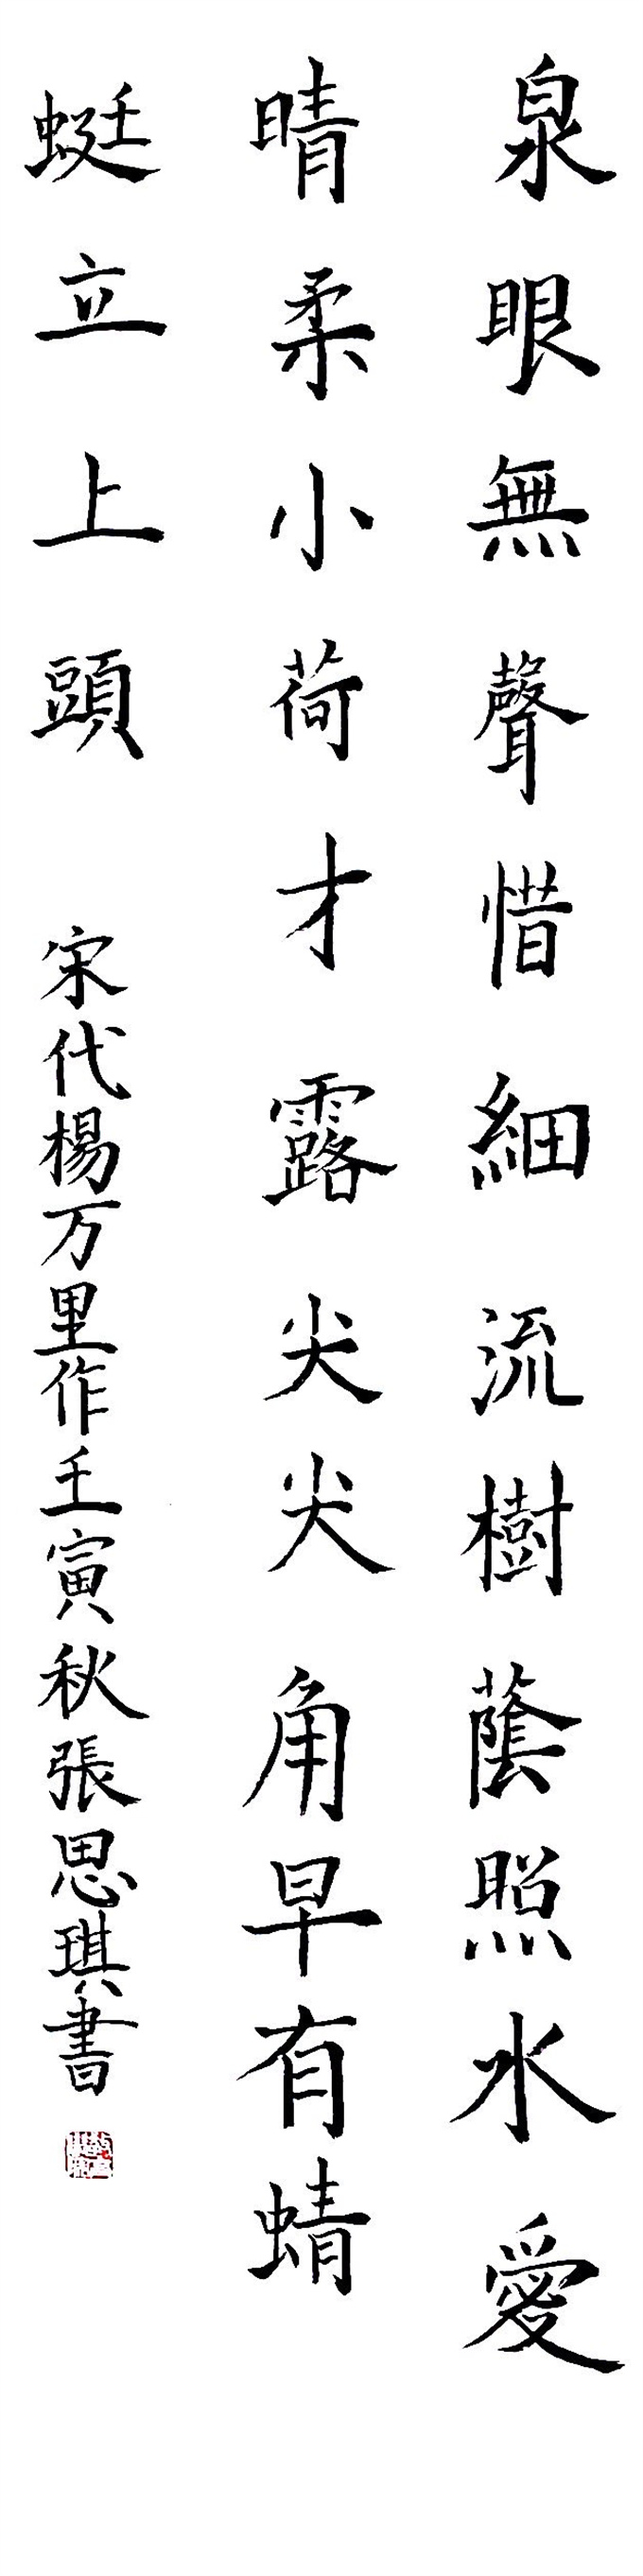 泉眼無聲惜細流樹蔭照水愛
晴柔小荷才露尖尖角早有蜻
蜓立上頭 宋代楊万里作壬寅秋張思琪書